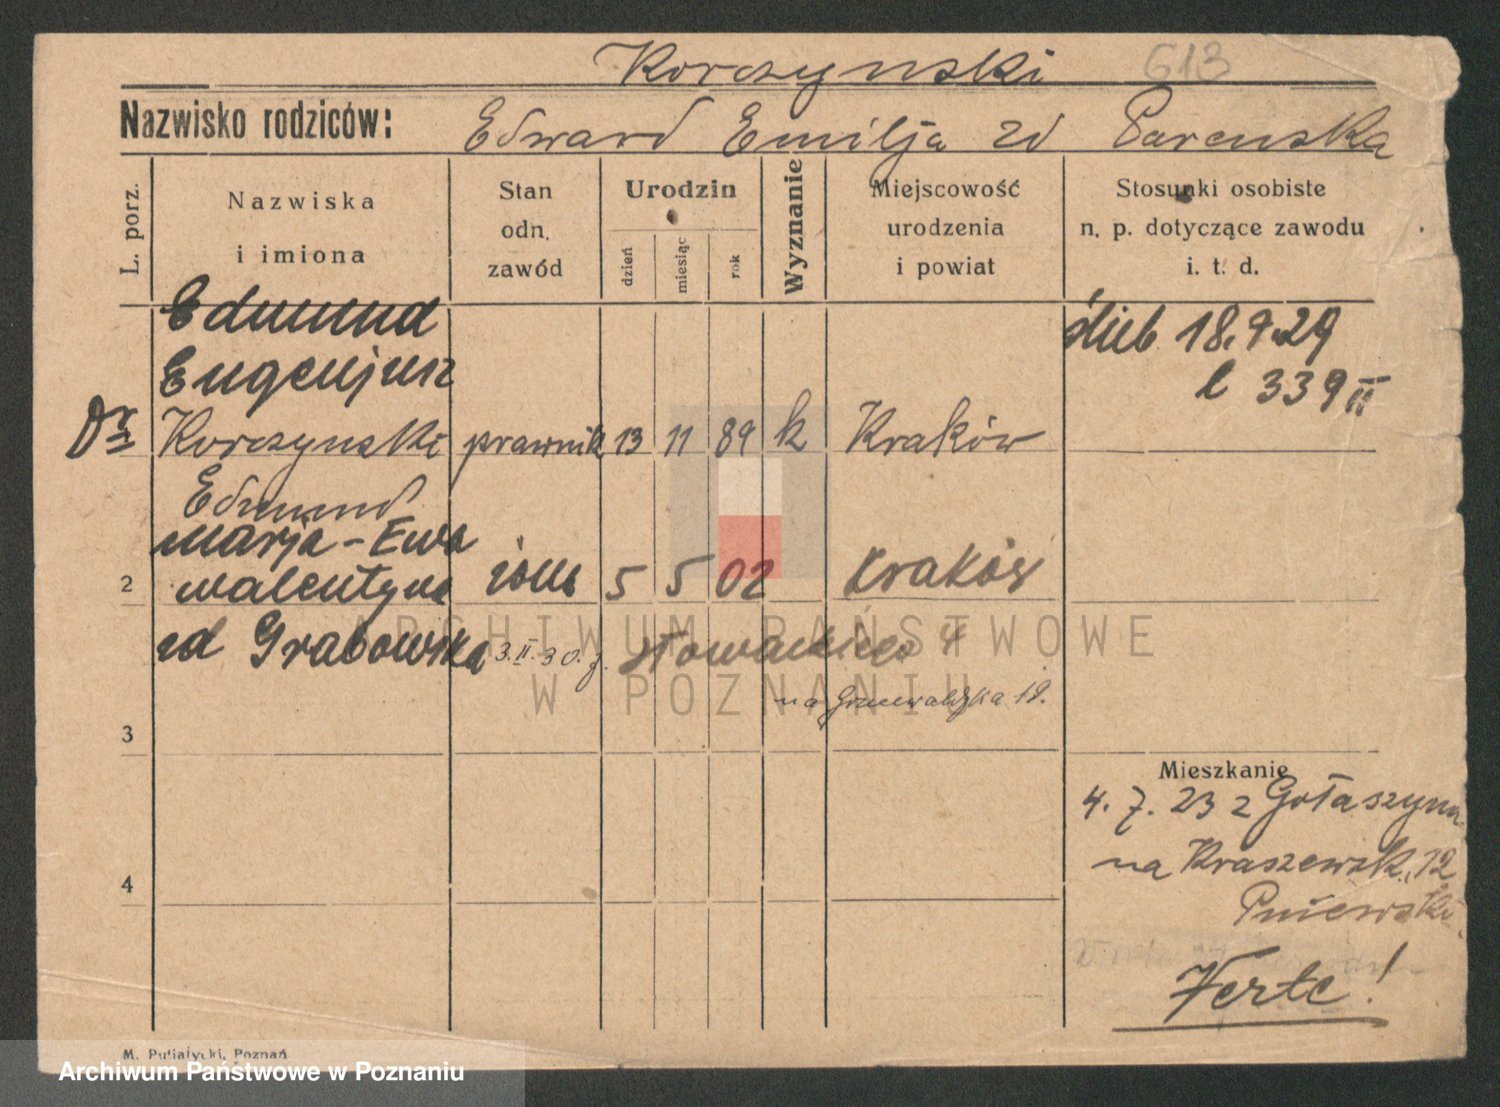 Korczynski 613
Nazwisko rodziców: Edward Emilja zd Parenska
L. porz.
Nazwiska
i imiona
Stan
odn.
zawód
Urodzin
dzień
miesiąc
rok
Wyznanie
Miejscowość
urodzenia
i powiat
Stosunki osobiste
n. p. dotyczące zawodu
i. t. d.
Edmund
Eugenjusz
Dr Korczynski prawnik 13 11 89 k Kraków
ślub 18.9.29
l 339 II
Edmund
Marja-Ewa
2 Walentyna żona 5 5 02 Kraków
zd Grabowska 3.II.30. Słowackiego 4
na Grunwaldzka 19.
3
Mieszkanie
4. 7. 23 z Gołaszyna
na Kraszewsk. 12
4
Pniewski
Verte!
M. Putiatycki, Poznań
ARCHIWUM PAŃSTWOWE
W POZNANIU
Archiwum Państwowe w Poznaniu